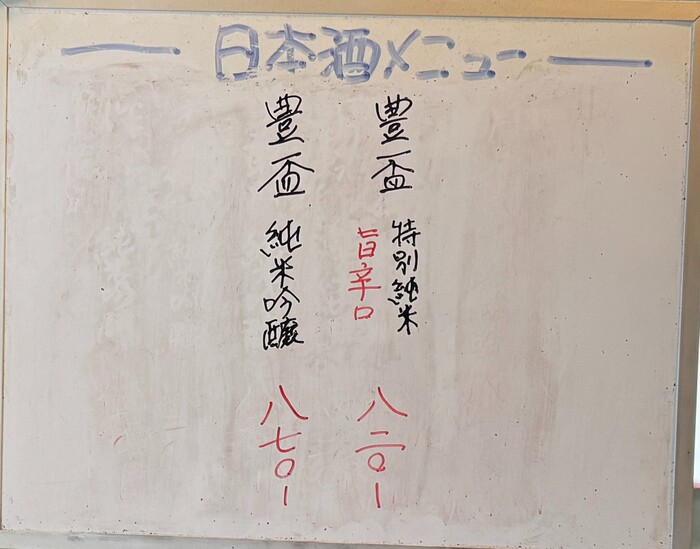 日本酒メニュー
豊盃 特別純米
旨辛口
八二〇ー
豊盃 純米吟醸 八七〇ー